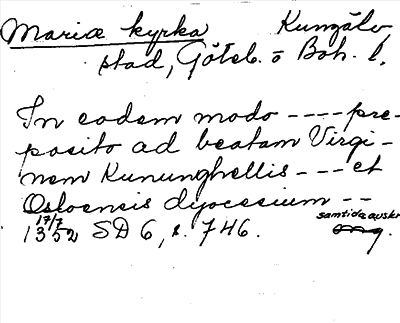 Mariæ kyrka Kungälv
stad, Göteb. o Boh. l.
In eodem modo ---- pre-
posito ad beatam Virgi-
nem Kununghellis --- et
Osloensis dyocesium --
17/7 1352 SD 6, s. 746. samtida avskr
orig.